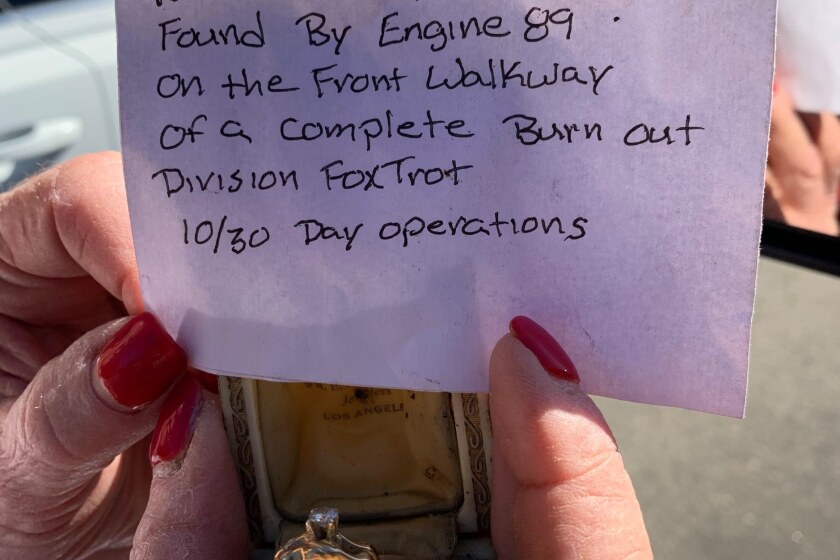 Found By Engine 89 .
on the Front Walkway
Of a Complete Burn out
Division FoxTrot
10/30 Day operations
LOS ANGELE